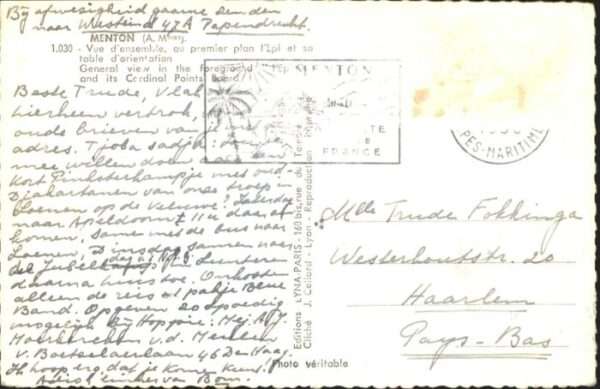 Bij afwezigheid gaarne zenden
naar Westeind 47A Papendrecht.
MENTON (A. Mmes).
1.030 - Vue d'ensemble, au premier plan l'Epi et sa
table d'orientation
General view in the foreground the
and its Cardinal Points Board
MENTON
FRANCE
PES-MARITIME
Beste Trude, Vlak
hierheen vertrok,
oude brieven van je
adres. Tjoba sadja:
mee willen doen aan een
kort Pinksterkampje met oud-
Djakartanen van onze troep in
Loenen op de Veluwe? Zaterdag
naar Apeldoorn ± 11 u daar
komen, samen met de bus naar
Loenen, Dinsdag samen naar
de Jubel
daarna huistoe. Onkosten
alleen de reis en pakje Blue
Band. Opgeven zo spoedig
mogelijk bij Hoppie: Mej. A. J.
v.d. Meulen
v. Boetselaerlaan 46 Den Haag.
Ik hoop erg dat je komen kunt.
van Bom.
Editions LYNA-PARIS - 160 bis, rue du Temple
Cliché J. Cellard - Lyon - Reproduction
Photo véritable
Mlle Trude Fokkinga
Westerhoutstr. 20
Haarlem
Pays-Bas